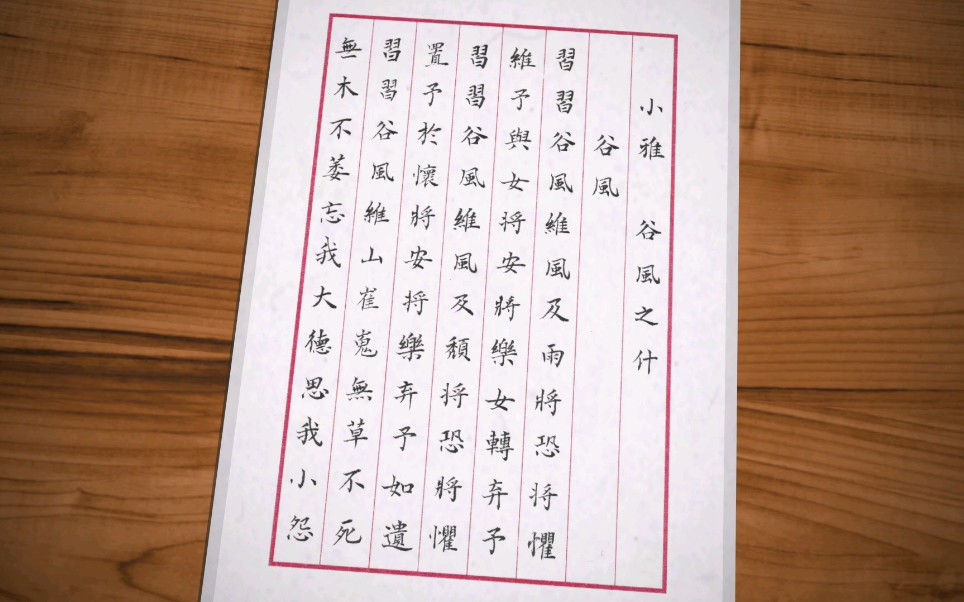 小雅 谷風之什
谷風
習習谷風維風及雨將恐將懼
維予與女將安將樂女轉弃予
習習谷風維風及頽將恐將懼
置予於懷將安將樂弃予如遺
習習谷風維山崔嵬無草不死
無木不萎忘我大德思我小怨